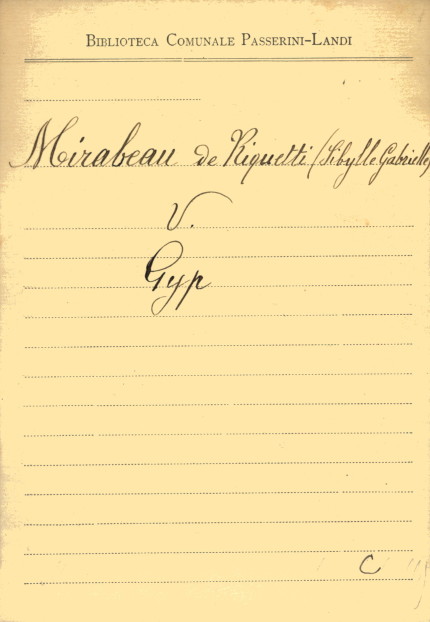 BIBLIOTECA COMUNALE PASSERINI-LANDI
Mirabeau de Riquetti (Sibylle Gabrielle)
V.
Gyp
C